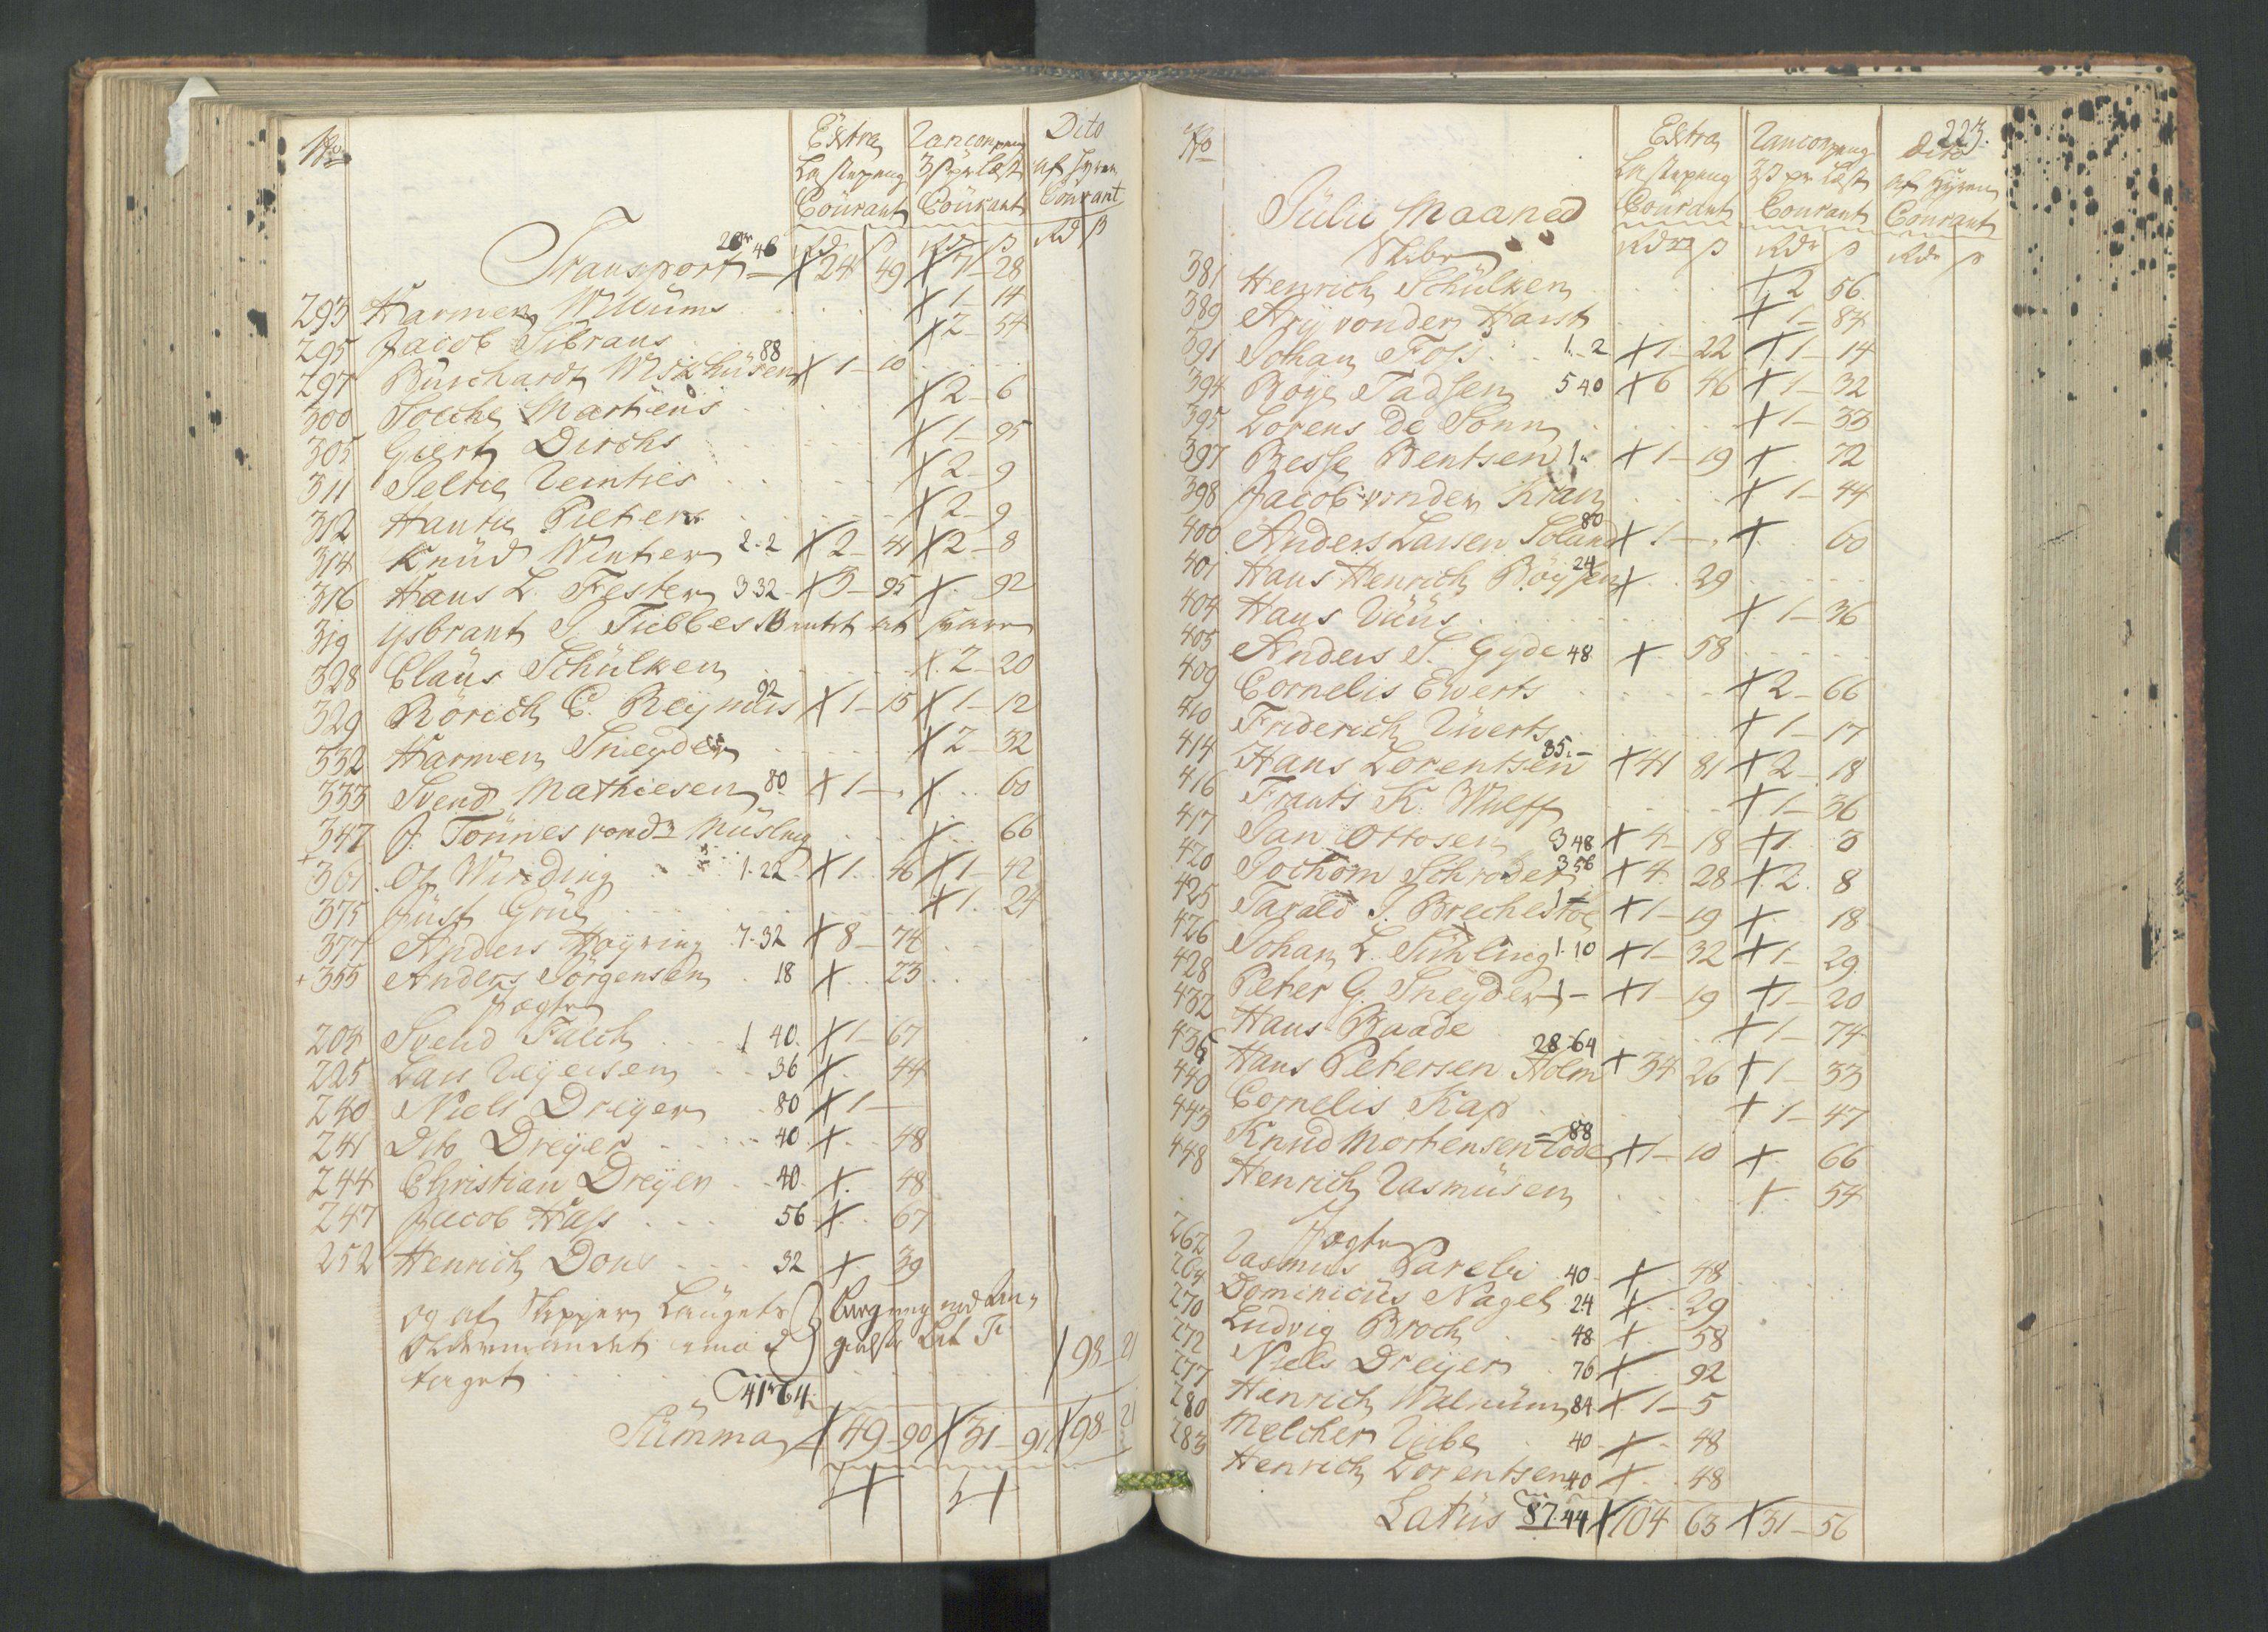 No Extra Ranconpeng Dito
Lastepeng 3 ß pr Læst af Hyren
Courant Courant Courant
Rd ß Rdr ß Rd ß
Transport 20 46 24 49 7 28
293 Harmen Willums 1 14
295 Jacob Sibrans 2 54
297 Burchardt 88 1 10
300 Martens 2 6
305 Giert Dirchs 1 95
311 Jeltie Reinties 2 9
312 Hantie Pieters 2 9
314 Knud Winter 2.2 2 41 2 8
316 Hans L. Fester 3 32 3 95 92
319 ijsbrant J. Tiebbes
328 Claus Schulken 2 20
329 Rörich C. Reijnders 92 1 15 1 12
332 Harmen Sneyder 2 32
333 Svend Mathiesen 80 1 60
347 J. Tönnes vondr 66
361 Of. Winding 1.22 1 46 1 42
375 Just Grue 1 24
377 Anders Høyring 7.32 8 74
355 Anders Jörgensen 18 23
Jægter
204 Svend Falch 1 40 1 67
225 Lars Reyersen 36 44
240 Niels Dreyer 80 1
241 Dito Dreyer 40 48
244 Christian Dreyer 40 48
247 Jacob Hass 56 67
252 Henrich Dons 32 39
og af Skipper Laugets
Oldermandet imod
taget 98 21
41 64
Summa 49 90 31 91 98 21
223.
No Extra Ranconpeng Dito
Lastepeng 3 ß pr Læst af Hyren
Courant Courant Courant
Julii Maaned
Rdr ß Rdr ß Rdr ß
Skibe
381 Henrich Schulken 2 56
389 Arij vonder Harst 1 84
391 Johan Foss 1.2 1 22 1 14
394 Boye Tadsen 5 40 6 46 1 32
395 Lorens de Sonn 1 33
397 Besse Bentsen 1 1 19 72
398 Jacob vonder Kran 1 44
400 Anders Larsen Soland 80 1 60
401 Hans Henrich Böysen 24 29
404 Hans 1 36
405 Anders S. Gyde 48 58
409 Cornelis Ewerts 2 66
410 Friderich Uwerts 1 17
414 Hans Lorentsen 35 41 81 2 18
416 Frants K. Wulff 1 36
417 Jan Ottosen 3 48 4 18 1 3
420 Jochom Schroder 3 56 4 28 2 8
425 Tarald J. Brechestöe 1 1 19 18
426 Johan L. 1.10 1 32 1 29
428 Peter G. Sneyder 1 1 19 1 20
432 Hans Baade 1 74
436 Hans Petersen Holm 28.64 34 26 1 33
440 Cornelis Kap 1 47
443 Knud Mortensen Rode 88 1 10 66
448 Henrich Rasmusen 54
Jægter
262 Rasmus Parelii 40 48
264 Dominicus Nagel 24 29
270 Ludvig Broch 48 58
272 Niels Dreyer 76 92
277 Henrich Walnum 84 1 5
280 Melcher Vibe 40 48
283 Henrich Lorentsen 40 48
Latus 87.44 104 63 31 56